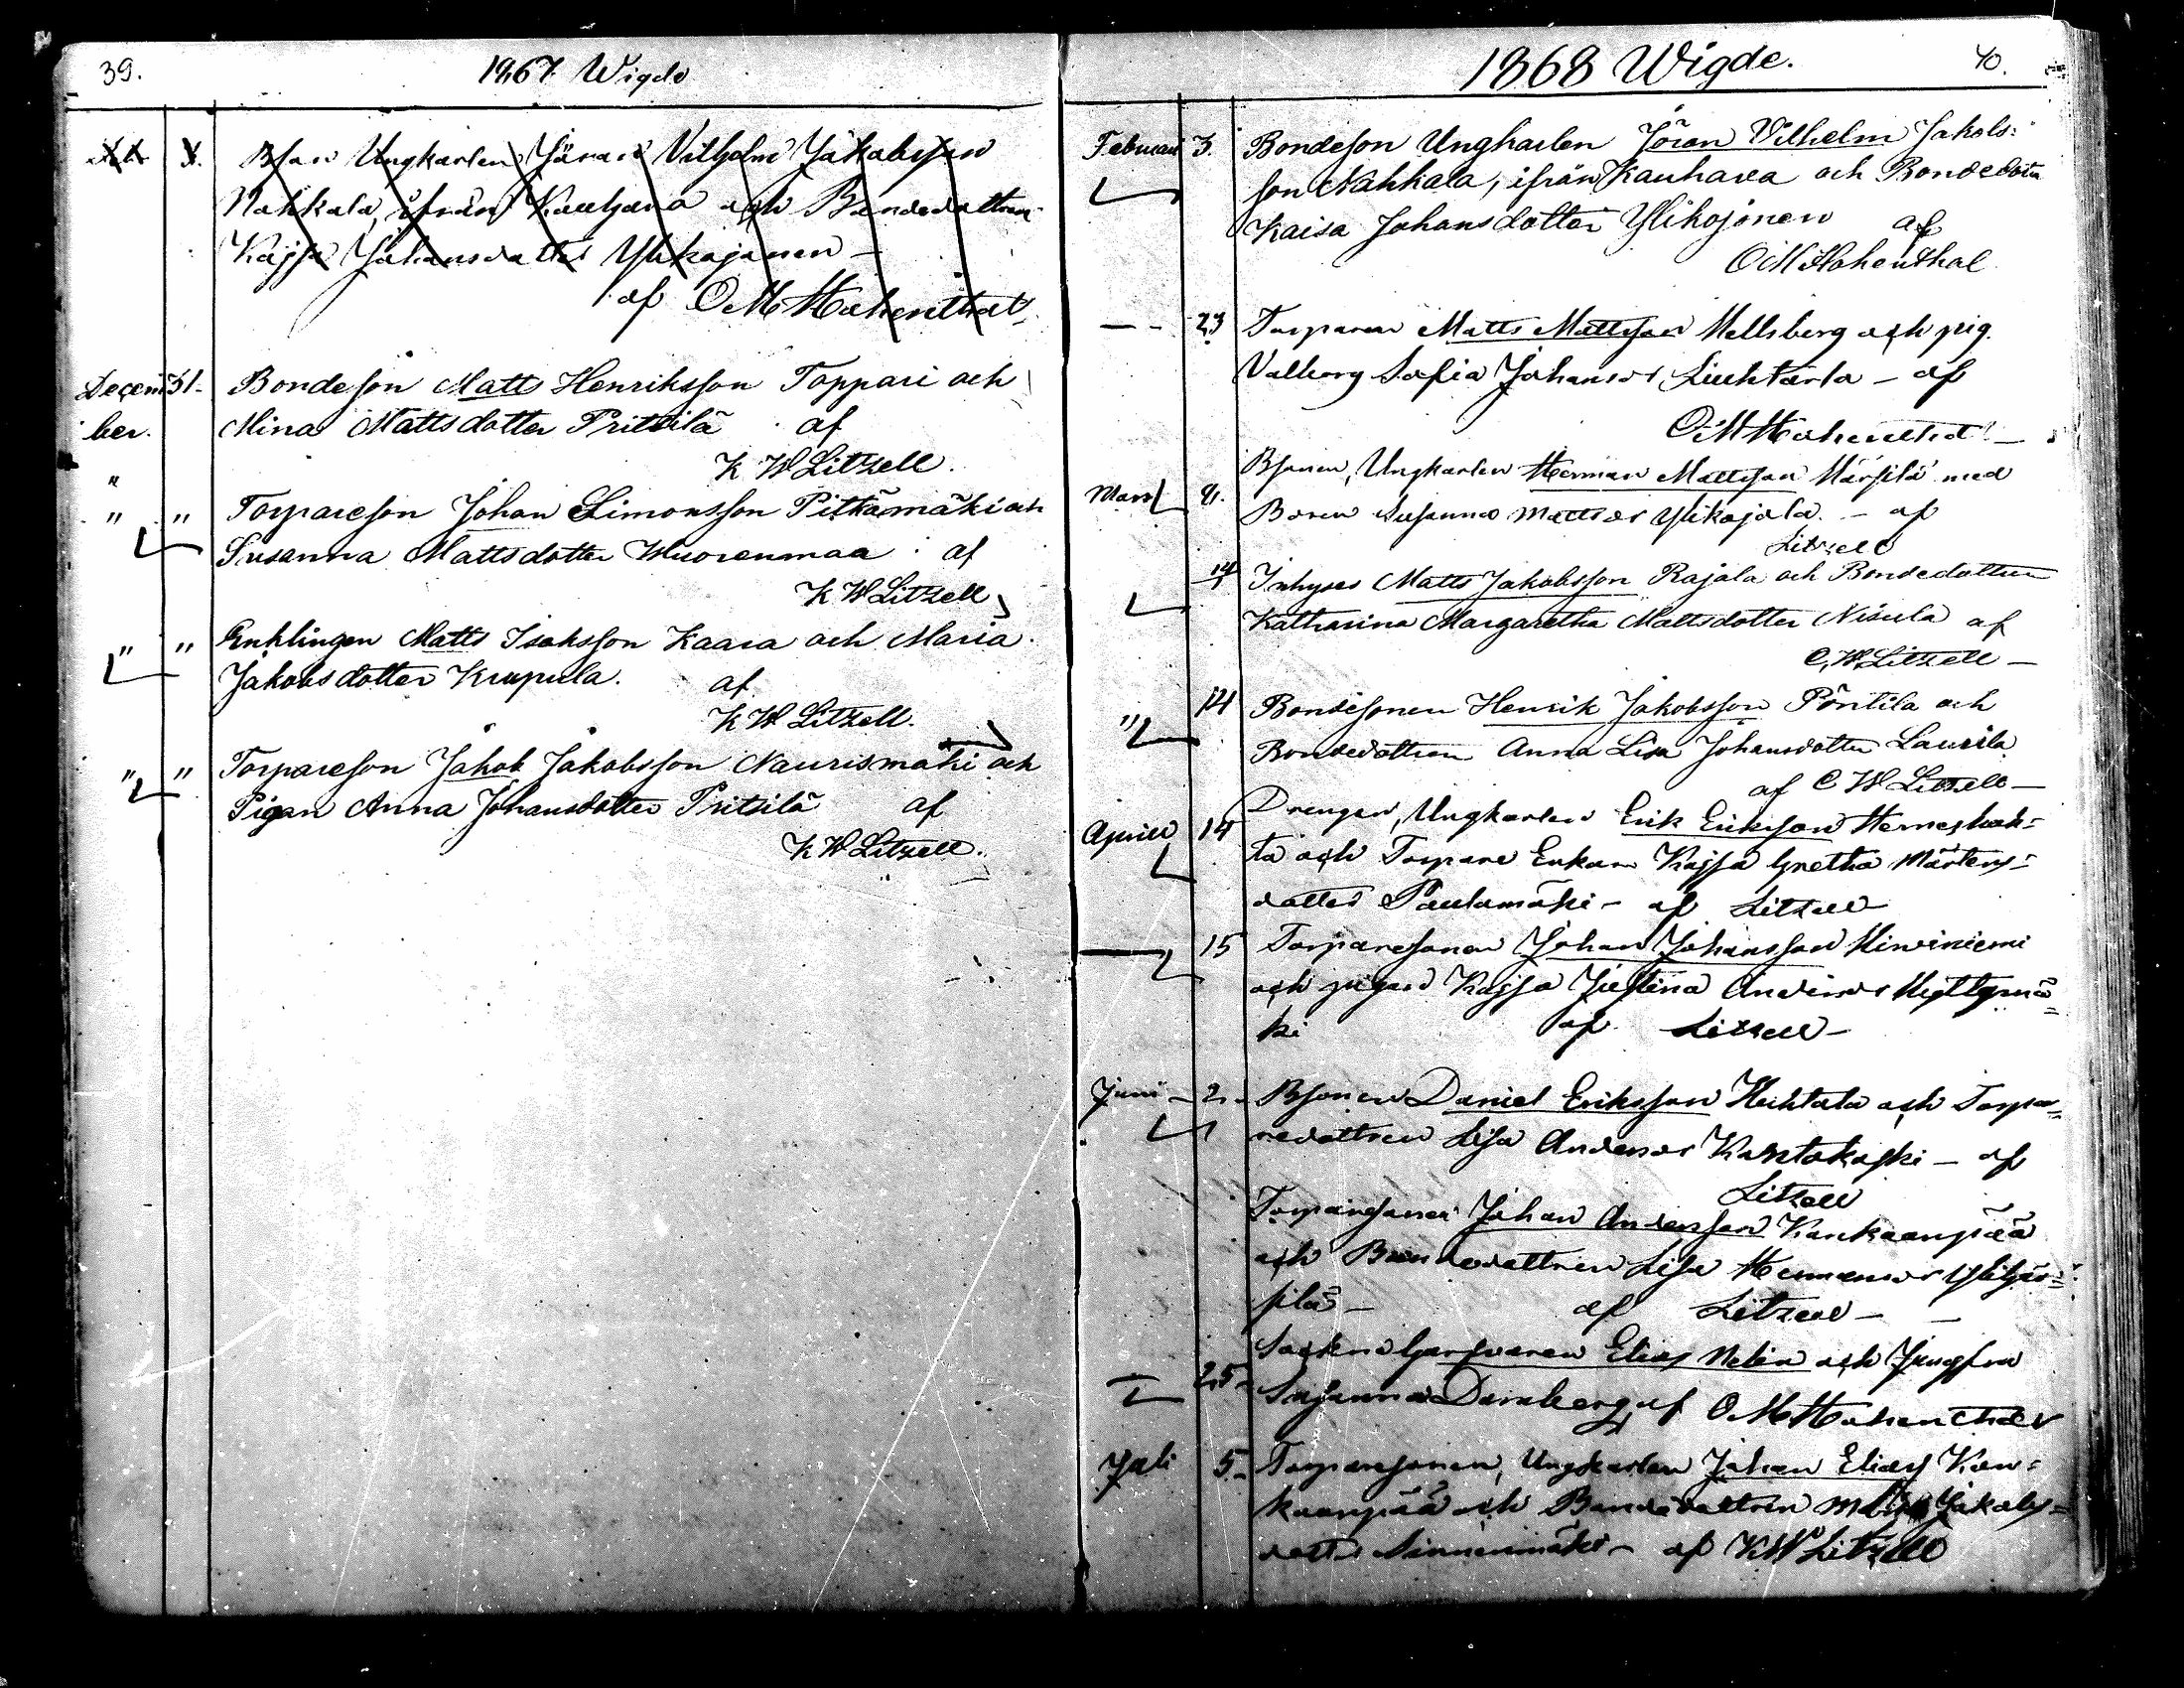 39. 1867. Wigde
Bson Ungkarlen Jöran Vilhelm Jakobsson
Nahkala, ifrån Kauhava och Bondedottren
Kajsa Johansdotter Ylikojonen –
af O M Hohenthal
Decem 31. Bondeson Matts Henriksson Toppari och
ber. Mina Mattsdotter Pritsilä af
K W Litzell.
" " Torpareson Johan Simonsson Pitkämäki och
Susanna Mattsdotter Wuorenmaa af
K W Litzell
" " Enklingen Matts Isaksson Kaara och Maria
Jakobsdotter Krupula. af
K W Litzell.
" " Torpareson Jakob Jakobsson Naurismäki och
Pigan Anna Johansdotter Pritsilä af
K W Litzell.
1868 Wigde. 40.
Februari 3. Bondeson Ungkarlen Jöran Vilhelm Jakobs:
son Nahkala, ifrån Kauhava och Bondedottr
Kaisa Johansdotter Ylikojonen af
O M Hohenthal
– – 23 Torparen Matts Mattsson Hellsberg och pig.
Valborg Sofia Johansdr Liuhtarla – af
O M Hohenthal –
Bsonen, Ungkarlen Herman Mattsson Märsilä med
Mars Susanna Mattsdr Ylikojola. – af
Litzell
14 Inhyses Matts Jakobsson Rajala och Bondedottren
Katharina Margaretha Mattsdotter Nisula af
C. W. Litzell –
" 14 Bondesonen Henrik Jakobsson Pöntilä och
Bondedottren Anna Lisa Johansdotter Laurila
af C W Litzell –
Drengen, Ungkarlen Erik Eriksson Herneshuh:
Aprill 14 ta och Torpare Enkan Kajsa Gretha Mårtens:
dotter Paulamäki – af Litzell
15 Torparesonen Johan Johansson Hirviniemi
och pigan Kajsa Justina Andersdr
ki af Litzell –
Juni – 2. Bsonen Daniel Eriksson Huhtala och Torpa=
redottren Lisa Andersdr Kortakoski – af
Litzell
Torparesonen Johan Andersson Kankaanpää
och Bondedottren Lisa Hermansdr
silä – af Litzell –
Sockne Garfvaren Elias Nelin och Jungfru
– 25 – Susanna Dernberg af O M Hohenthal
Juli 5. Torparesonen, Ungkarlen Johan Elias Kan=
kaanpää och Bondedottren Jakobs=
dotter – af K W Litzell